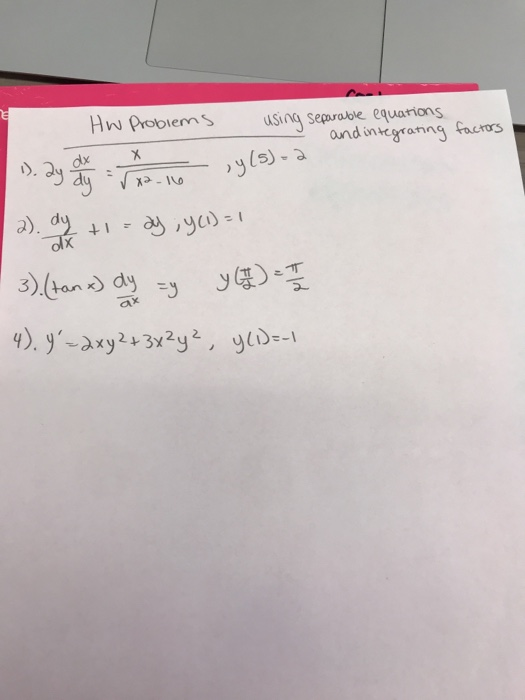 HW Problems using separable equations
and integrating factors
1). 2y dx/dy = x/√x2-16 , y(5) = 2
2). dy/dx + 1 = 2y , y(1) = 1
3). (tan x) dy/dx = y y(π/2) = π/2
4). y' = 2xy² + 3x²y², y(1) = -1